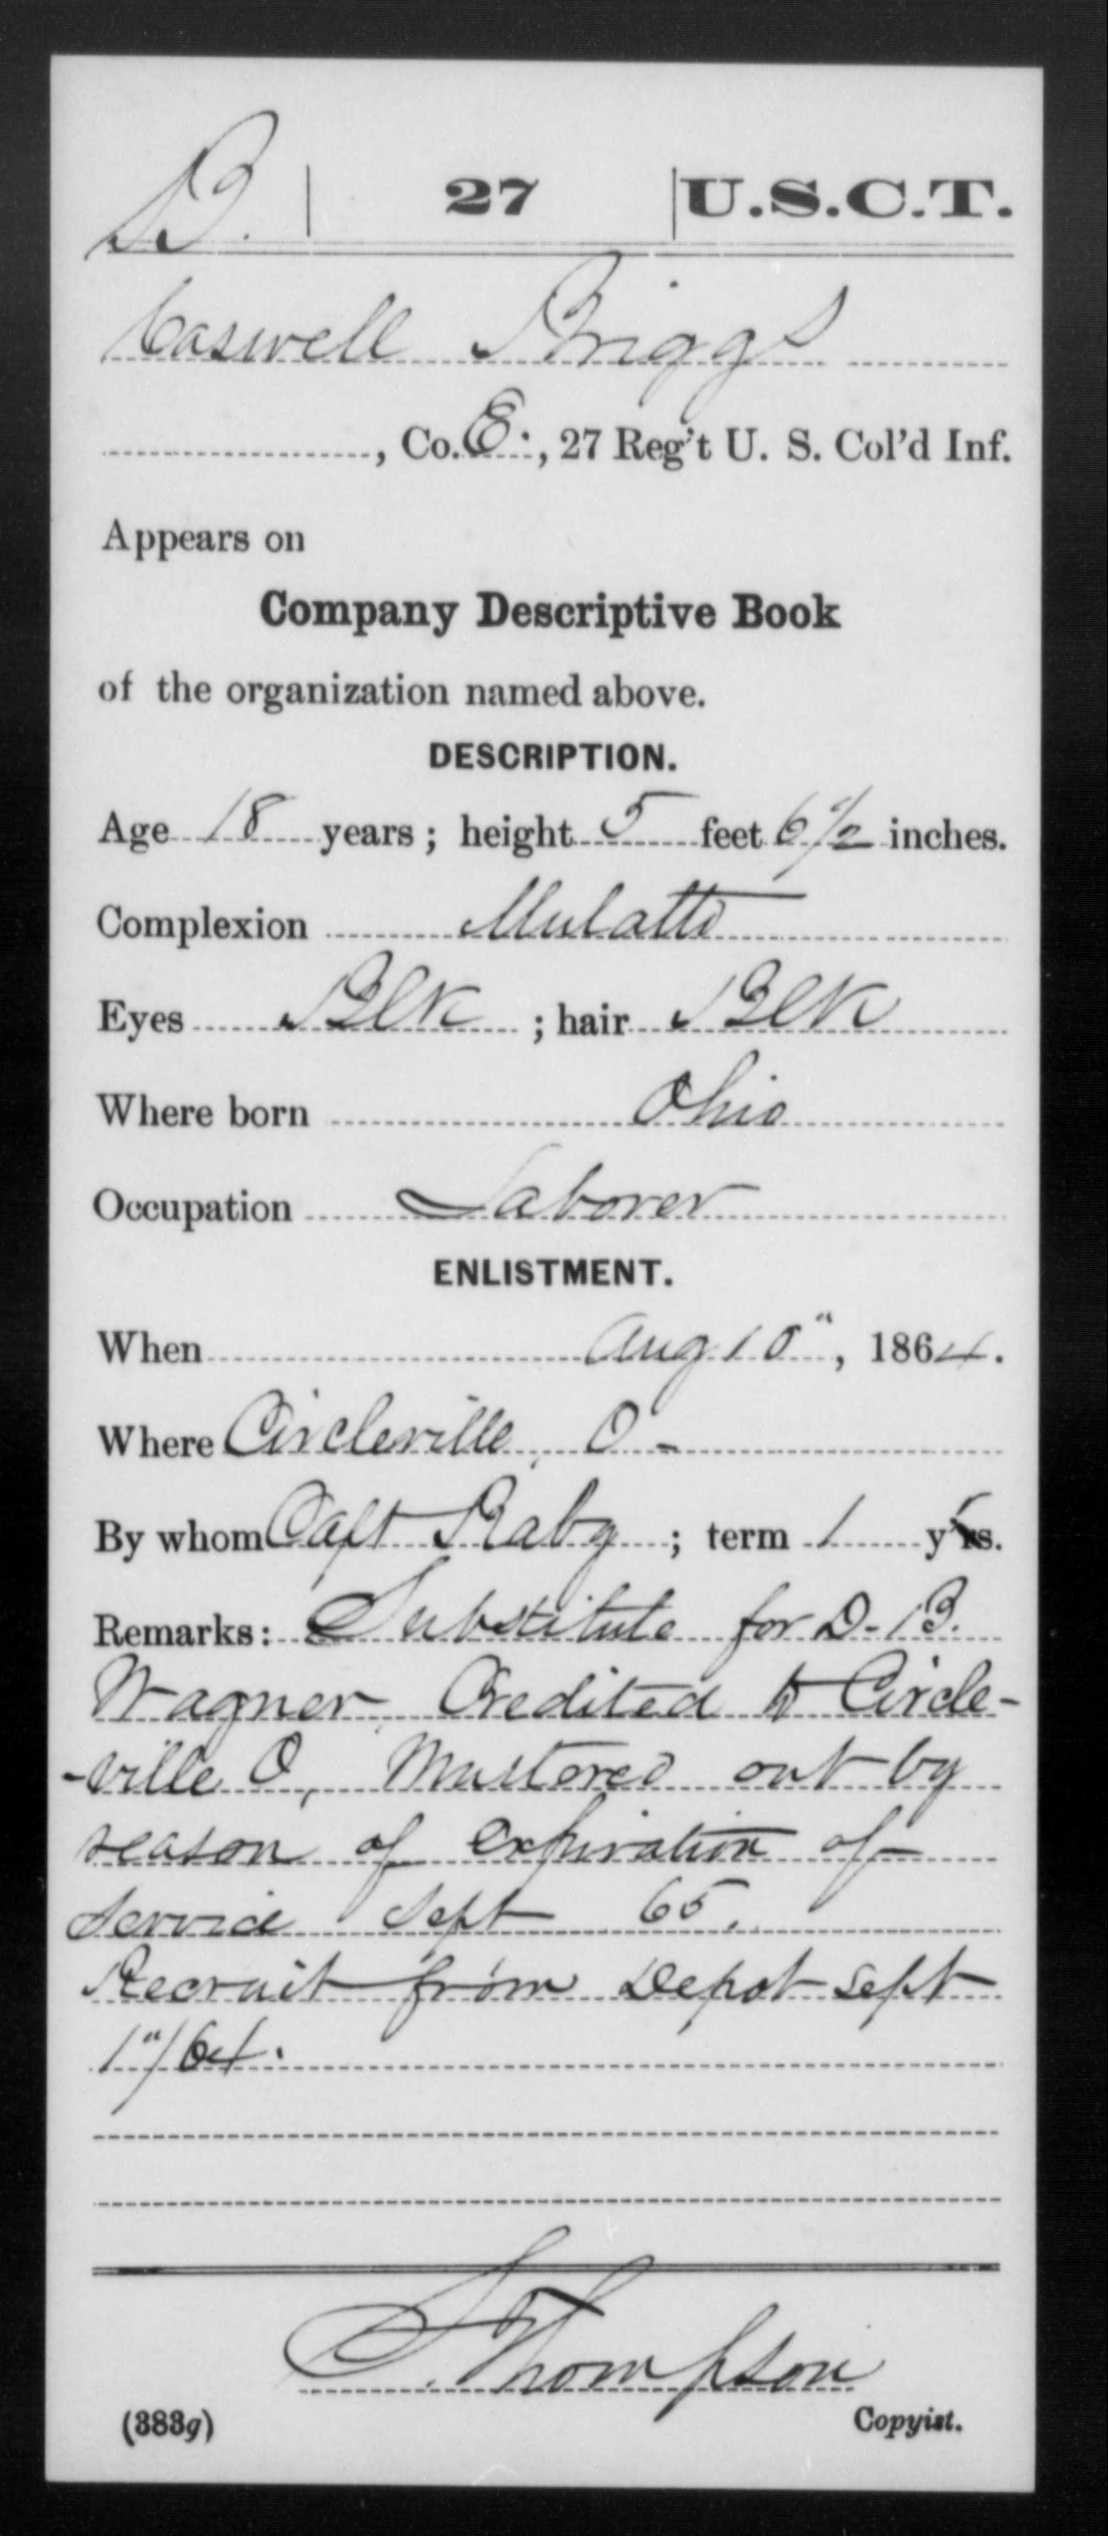 B. | 27 | U.S.C.T.
Caswell Briggs
, Co. E., 27 Reg't U. S. Col'd Inf.
Appears on
Company Descriptive Book
of the organization named above.
DESCRIPTION.
Age 18 years; height 5 feet 6 1/2 inches.
Complexion Mulatto
Eyes Blk ; hair Blk
Where born Ohio
Occupation Laborer
ENLISTMENT.
When Aug 10", 1864.
Where Circleville, O-
By whom Capt Raby ; term 1 y'rs.
Remarks: Substitute for D. B.
Wagner, Credited to Circle-
-ville O, Mustered out by
reason of expiration of
service Sept 65.
Recruit from Depot Sept
1"/64.
S. Thompson
(383g) Copyist.